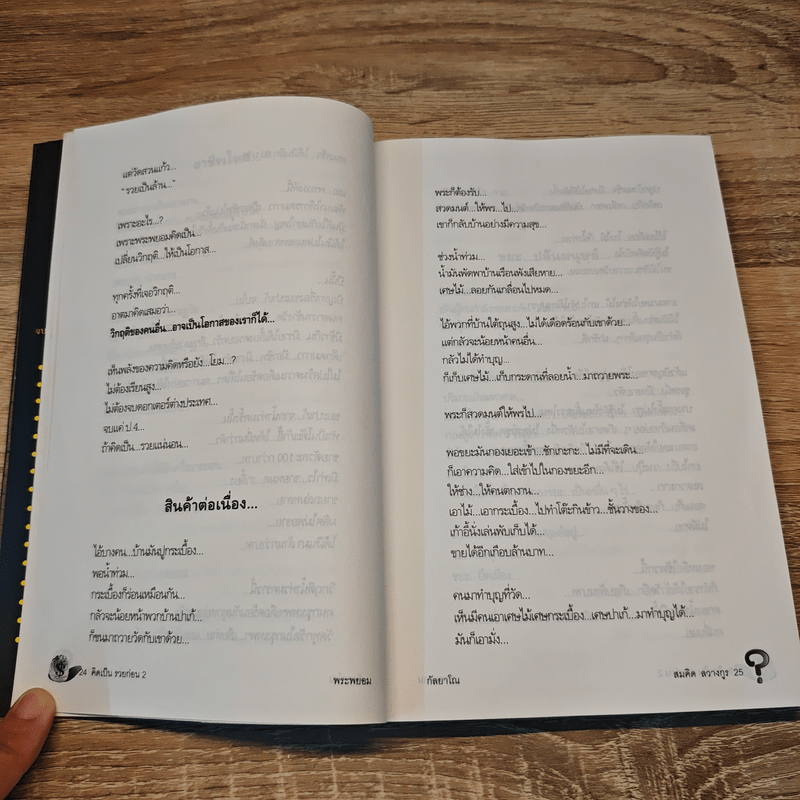 แต่วัดสวนแก้ว...
"รวยเป็นล้าน..."
เพราะอะไร...?
เพราะพระพยอมคิดเป็น...
เปลี่ยนวิกฤติ...ให้เป็นโอกาส...
ทุกครั้งที่เจอวิกฤติ...
อาตมาคิดเสมอว่า...
วิกฤติของคนอื่น...อาจเป็นโอกาสของเราก็ได้...
เห็นพลังของความคิดหรือยัง...โยม...?
ไม่ต้องเรียนสูง...
ไม่ต้องจบดอกเตอร์ต่างประเทศ...
จบแค่ ป.4...
ถ้าคิดเป็น...รวยแน่นอน...
สินค้าต่อเนื่อง...
ไอ้บางคน...บ้านมันปูกระเบื้อง...
พอน้ำท่วม...
กระเบื้องก็ร่อนเหมือนกัน...
กลัวจะน้อยหน้าพวกบ้านปาเก้...
ก็ขนมาถวายวัดกับเขาด้วย...
24 คิดเป็น รวยก่อน 2
พระพยอม
พระก็ต้องรับ...
สวดมนต์...ให้พร...ไป...
เขาก็กลับบ้านอย่างมีความสุข...
ช่วงน้ำท่วม...
น้ำมันพัดพาบ้านเรือนพังเสียหาย...
เศษไม้...ลอยกันเกลื่อนไปหมด...
ไอ้พวกที่บ้านใต้ถุนสูง...ไม่ได้เดือดร้อนกับเขาด้วย...
แต่กลัวจะน้อยหน้าคนอื่น...
กลัวไม่ได้ทำบุญ...
ก็เก็บเศษไม้...เก็บกระดานที่ลอยน้ำ...มาถวายพระ...
พระก็สวดมนต์ให้พรไป...
พอขยะมันกองเยอะเข้า...ชักเกะกะ...ไม่มีที่จะเดิน...
ก็เอาความคิด...ใส่เข้าไปในกองขยะอีก...
ให้ช่าง...ให้คนตกงาน...
เอาไม้...เอากระเบื้อง...ไปทำโต๊ะกินข้าว...ชั้นวางของ...
เก้าอี้นั่งเล่นพับเก็บได้...
ขายได้อีกเกือบล้านบาท...
คนมาทำบุญที่วัด...
เห็นมีคนเอาเศษไม้เศษกระเบื้อง...เศษปาเก้...มาทำบุญได้...
มันก็เอามั่ง...
กัลยาโณ
สมคิด ลวางกูร 25